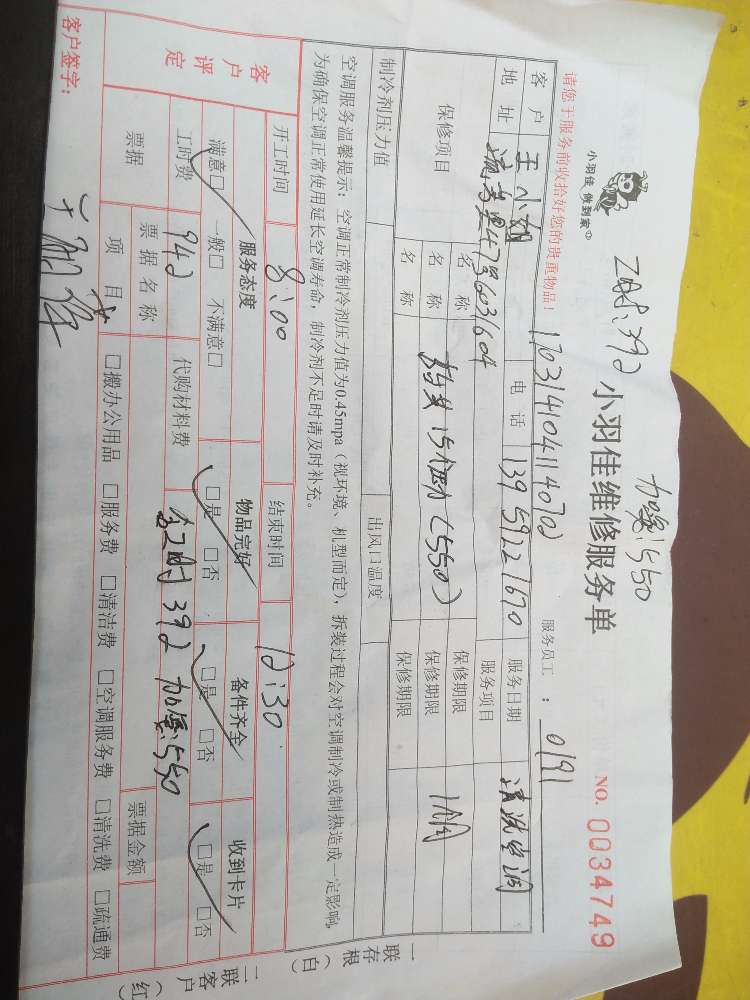 加氨550
小羽佳 做到家
小羽佳维修服务单
NO. 0034749
请您于服务前收拾好您的贵重物品!
1703141041140702
服务员工 : 0191
客户 王小姐 电话 13959221670 服务日期
地址 603 1604 服务项目 清洗空调
保修项目 名称 保修期限
名称 (550) 保修期限 1个月
名称 保修期限
制冷剂压力值 出风口温度
空调服务温馨提示:空调正常制冷剂压力值为0.45mpa(视环境、机型而定),拆装过程会对空调制冷或制热造成一定影响,
为确保空调正常使用延长空调寿命,制冷剂不足时请及时补充。
开工时间 8:00 结束时间 12:30
客户评定 服务态度 物品完好 备件齐全 收到卡片
满意□ 一般□ 不满意□ □是 □否 □是 □否 □是 □否
工时费 942 代购材料费 392 550
票据 票据名称 票据金额
项目 □搬办公用品 □服务费 □清洁费 □空调服务费 □清洗费 □疏通费
客户签字:
一联存根(白)
二联客户(红)